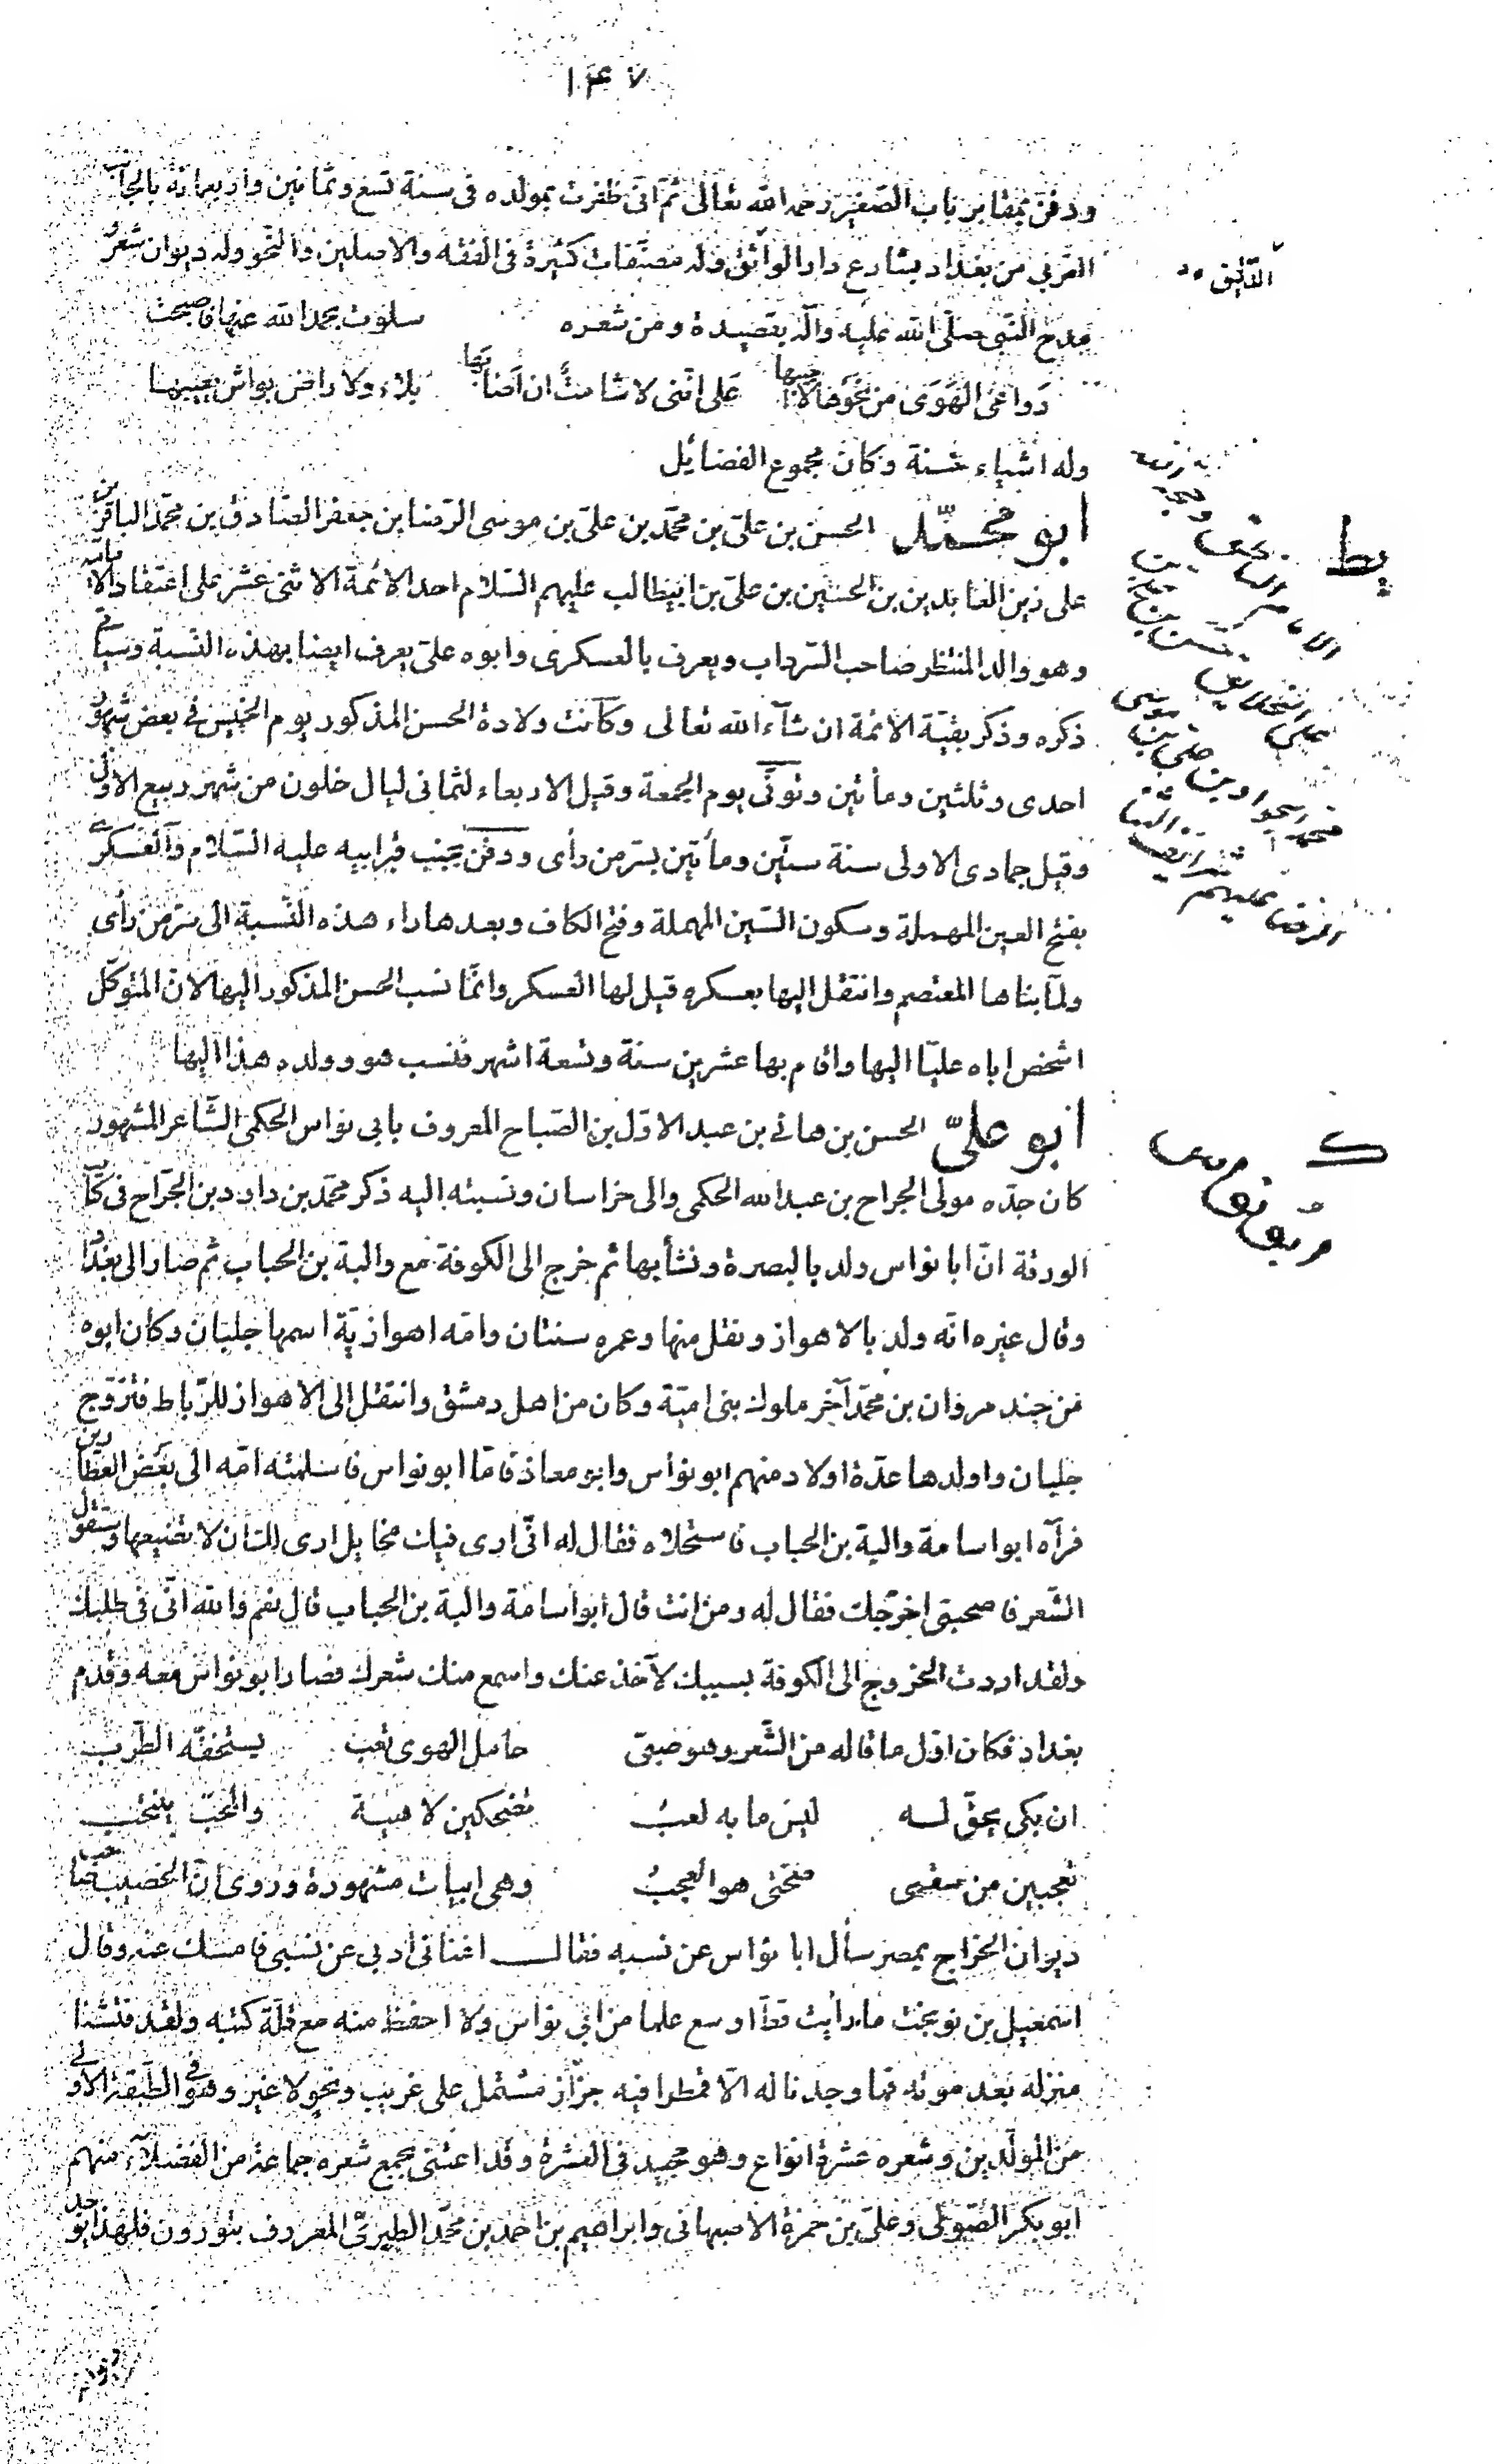 ١٤٧
ودفن بمقابر باب الصغير رحمه الله تعالى ثم انى ظفرت بمولده فى سنة تسع وثمانين واربعمائة بالجانب
الغربى من بغداد بشارع دار الوأثق وله مصنّفات كثيرة فى الفقه والاصلين والنّحو وله ديوان شعر و
مدح النّبى صلّى الله عليه وآله بقصيدة ومن شعره سلوت بحمد الله عنها فاصبحت
دواعى الهَوَى من نَحْوِها لا اجيبها عَلى انّنى لا شامتٌ ان اَصابَها بلاء ولا راض بواش يعيبها
وله اشياء حسنة وكان مجموع الفضايل
ابو محمّد الحسن بن علىّ بن محمّد بن علىّ بن موسى الرّضا بن جعفر الصّادق بن محمّد الباقر بن
على زين العابدين بن الحسين بن علىّ بن ابيطالب عليهم السّلام احد الائمة الاثنى عشر على اعتقاد الاماميه
وهو والد المنتظر صاحب السّرداب ويعرف بالعسكرى وابوه علىّ يعرف ايضا بهذه النّسبة وسيأتى
ذكره وذكر بقيّة الائمة ان شآء الله تعالى وكآنت ولادة الحسن المذكور يوم الخميس فى بعض شهور
احدى وثلثين ومأتين وتوفّى يوم الجمعة وقيل الاربعاء لثمانى ليال خلون من شهر ربيع الاول
وقيل جمادى الاولى سنة ستّين ومأتين بسرّ من رأى ودفن بجنب قبر ابيه عليه السّلام والعسكرى
بفتح العين المهملة وسكون السّين المهملة وفتح الكاف وبعدها راء هذه النّسبة الى سرّ من رأى
ولمّا بناها المعتصم وانتقل اليها بعسكره قيل لها العسكر وانّما نسب الحسن المذكور اليها لانّ المتوكّل
اشخص اباه عليّا اليها واقام بها عشرين سنة وتسعة اشهر فنسب هو وولده هذا اليها
ابو علىّ الحسن بن هانى بن عبد الاوّل بن الصّباح المعروف بابى نواس الحكمىّ الشّاعر المشهور
كان جدّه مولى الجراح بن عبد الله الحكمى والى خراسان ونسبته اليه ذكر محمّد بن داود بن الجرّاح فى كتاب
الورقة انّ ابا نواس ولد بالبصرة ونشأ بها ثم خرج الى الكوفة مع والبة بن الحباب ثم صار الى بغداد
وقال غيره انّه ولد بالاهواز ونقل منها وعمره سنتان وامّه اهوازيّة اسمها جلبان وكان ابوه
من جند مروان بن محمّد آخر ملوك بنى اميّة وكان من اهل دمشق وانتقل الى الاهواز للرّباط فتزوّج
جلبان واولدها عدّة اولاد منهم ابو نوأس وابو معاذ فامّا ابو نواس فاسلمته امّه الى بعض العطّارين
فرآه ابو اسامة والبة بن الحباب فاستحلاه فقال له انّى ارى فيك مخايل ارى لك ان لا تضيّعها وستقول
الشّعر فاصحبنى اخرّجك فقال له ومن انت قال ابو اسامة والبة بن الحباب قال نعم والله انّى فى طلبك
ولقد اردت الخروج الى الكوفة بسببك لآخذ عنك واسمع منك شعرك فصار ابو نواس معه وقدم
بغداد فكان اوّل ما قاله من الشّعر وهو صبىّ حامل الهوى تعب يستخفّه الطّرب
ان بكى يحقّ لــه ليس ما به لعبُ تضحكين لاهية والمحبّ ينتحب
تعجبين من سقمى صحّتى هو العجبُ وهى ابيات مشهورة وروى انّ الخصيب صاحب
ديوان الخراج بمصر سأل ابا نواس عن نسبه فقالــــ اغنانى ادبى عن نسبى فامسك عنه وقال
اسمعيل بن نوبخت ما رأيت قطّ اوسع علما من ابى نواس ولا احفظ منه مع قلّة كتبه ولقد فتّشنا
منزله بعد موته فما وجدنا له الّا قمطرا فيه جزاز مشتمل على غريب ونحو لا غير وهو فى الطّبقة الاولى
من المولّدين وشعره عشرة انواع وهو مجيد فى العشرة وقد اعتنى بجمع شعره جماعة من الفضلاء منهم
ابو بكر الصّولى وعلىّ بن حمزة الاصبهانى وابراهيم بن احمد بن محمّد الطبرىّ المعروف بتوزون فلهذا يوجد
الدّقيق
يط
ك
ابونوس